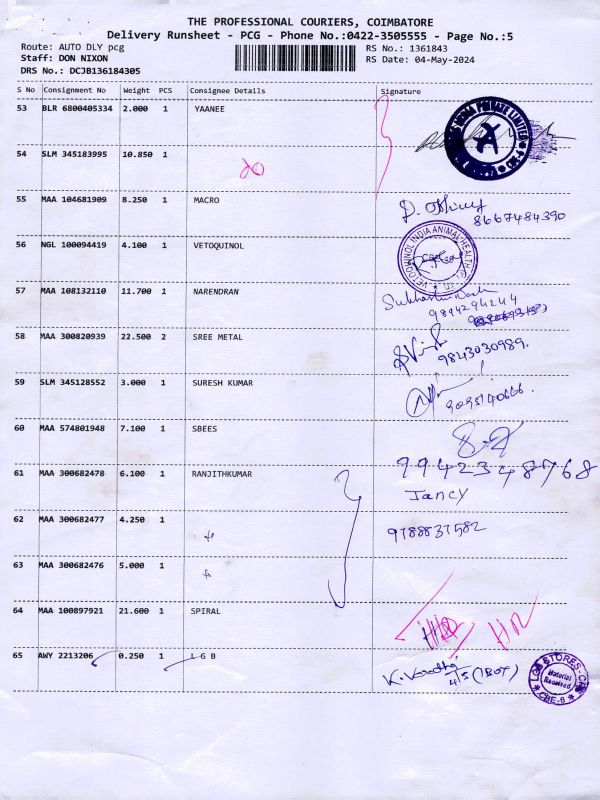 THE PROFESSIONAL COURIERS, COIMBATORE
Delivery Runsheet - PCG - Phone No.:0422-3505555 - Page No.:5
Route: AUTO DLY pcg
RS No.: 1361843
Staff: DON NIXON
RS Date: 04-May-2024
DRS No.: DCJB136184305
S No Consignment No Weight PCS Consignee Details Signature
53 BLR 6800405334 2.000 1 YAANEE
INDIA PRIVATE LIMITED
54 SLM 345183995 10.850 1
55 MAA 104681909 8.250 1 MACRO
8667484390
56 NGL 100094419 4.100 1 VETOQUINOL
VETOQUINOL INDIA ANIMAL HEALTH
57 MAA 108132110 11.700 1 NARENDRAN
9894294244
58 MAA 300820939 22.500 2 SREE METAL
9843030989.
59 SLM 345128552 3.000 1 SURESH KUMAR
9095140666.
60 MAA 574801948 7.100 1 SBEES
9942348768
61 MAA 300682478 6.100 1 RANJITHKUMAR
Jancy
62 MAA 300682477 4.250 1
9788837582
63 MAA 300682476 5.000 1
64 MAA 100897921 21.600 1 SPIRAL
65 AWY 2213206 0.250 1 L G B
K. Varatha 4/5 (IBOT)
LGB STORES-CBE
Material Received
CBE-6